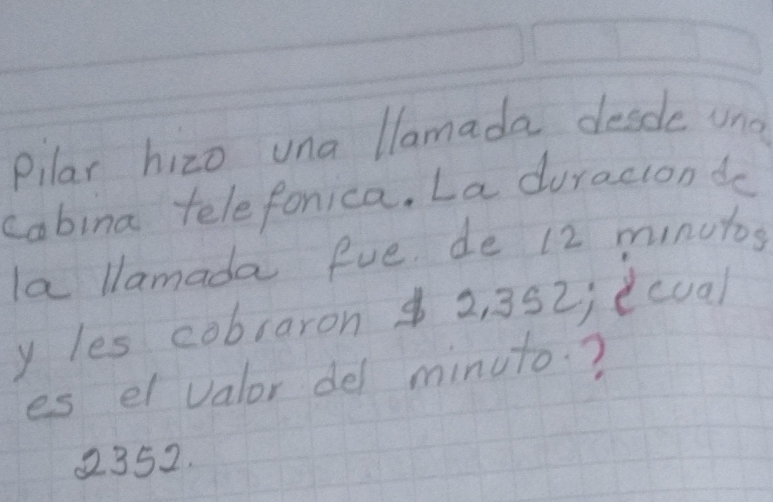 Pilar hizo una llamada desde una
cabina telefonica. La duracion de
la llamada fue. de 12 minutos
y les cobraron $ 2,352; ¿cual
es el valor del minuto.?
2352.